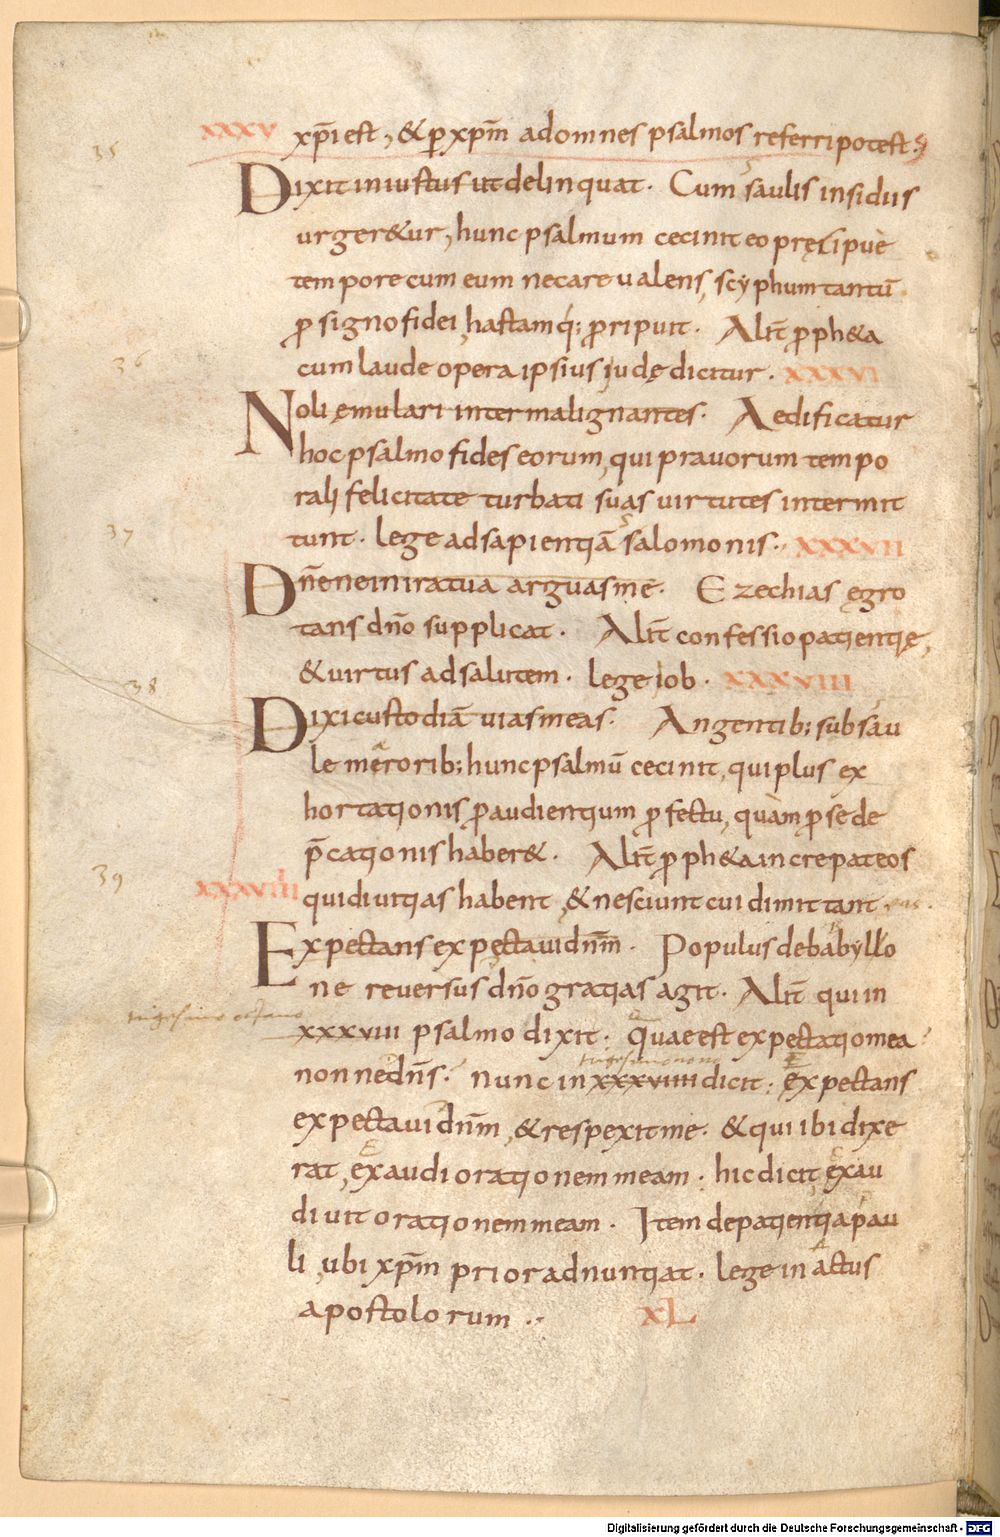 35
XXXV xp̄i est, & p̱ xp̄m ad omnes psalmos referri potest.
Dixit iniustus ut delinquat. Cum saulis insidiis
urger&ur, hunc psalmum cecinit eo pręcipue
tempore cum eum necare ualens, scyphum tantū
ꝓ signo fidei, hastamq; ꝓripuit. Alit̄ ꝓph&a
cum laude opera ipsius iudę dicitur. XXXVI
36
Noli ęmulari inter malignantes. Aedificatur
hoc psalmo fides eorum, qui prauorum tempo
rali felicitate turbati suas uirtutes intermit
tunt. lege ad sapientiā salomonis. XXXVII
37
Dn̄e ne in ira tua arguas me. Ezechias ęgro
tans dn̄o supplicat. Alit̄ confessio patientię,
& uirtus ad salutem. lege iob. XXXVIII
38
Dixi custodiā uias meas. Angentib; sub sau
le meroribus; hunc psalmū cecinit, qui plus ex
hortationis ꝓ audientium ꝓfectu, quam ꝓ se de
p̄cationis haber&. Alit̄ ꝓph&a increpat eos
39
XXXVIIII qui diuitias habent, & nesciunt cui dimittant eas.
Expectans expectaui dn̄m. Populus de babyllo
ne reuersus dn̄o gratias agit. Alit̄ qui in
trigesimo octauo
xxxviii psalmo dixit. quae est expectatio mea
trigesimo nono
nonne dn̄s. nunc in xxxviiii dicit: expectans
expectaui dn̄m, & respexit me. & qui ibi dixe
rat, exaudi orationem meam. hic dicit exau
diuit orationem meam. Item de patientia pau
li, ubi xp̄m prior adnuntiat. lege in actus
apostolorum. XL
Digitalisierung gefördert durch die Deutsche Forschungsgemeinschaft - DFG